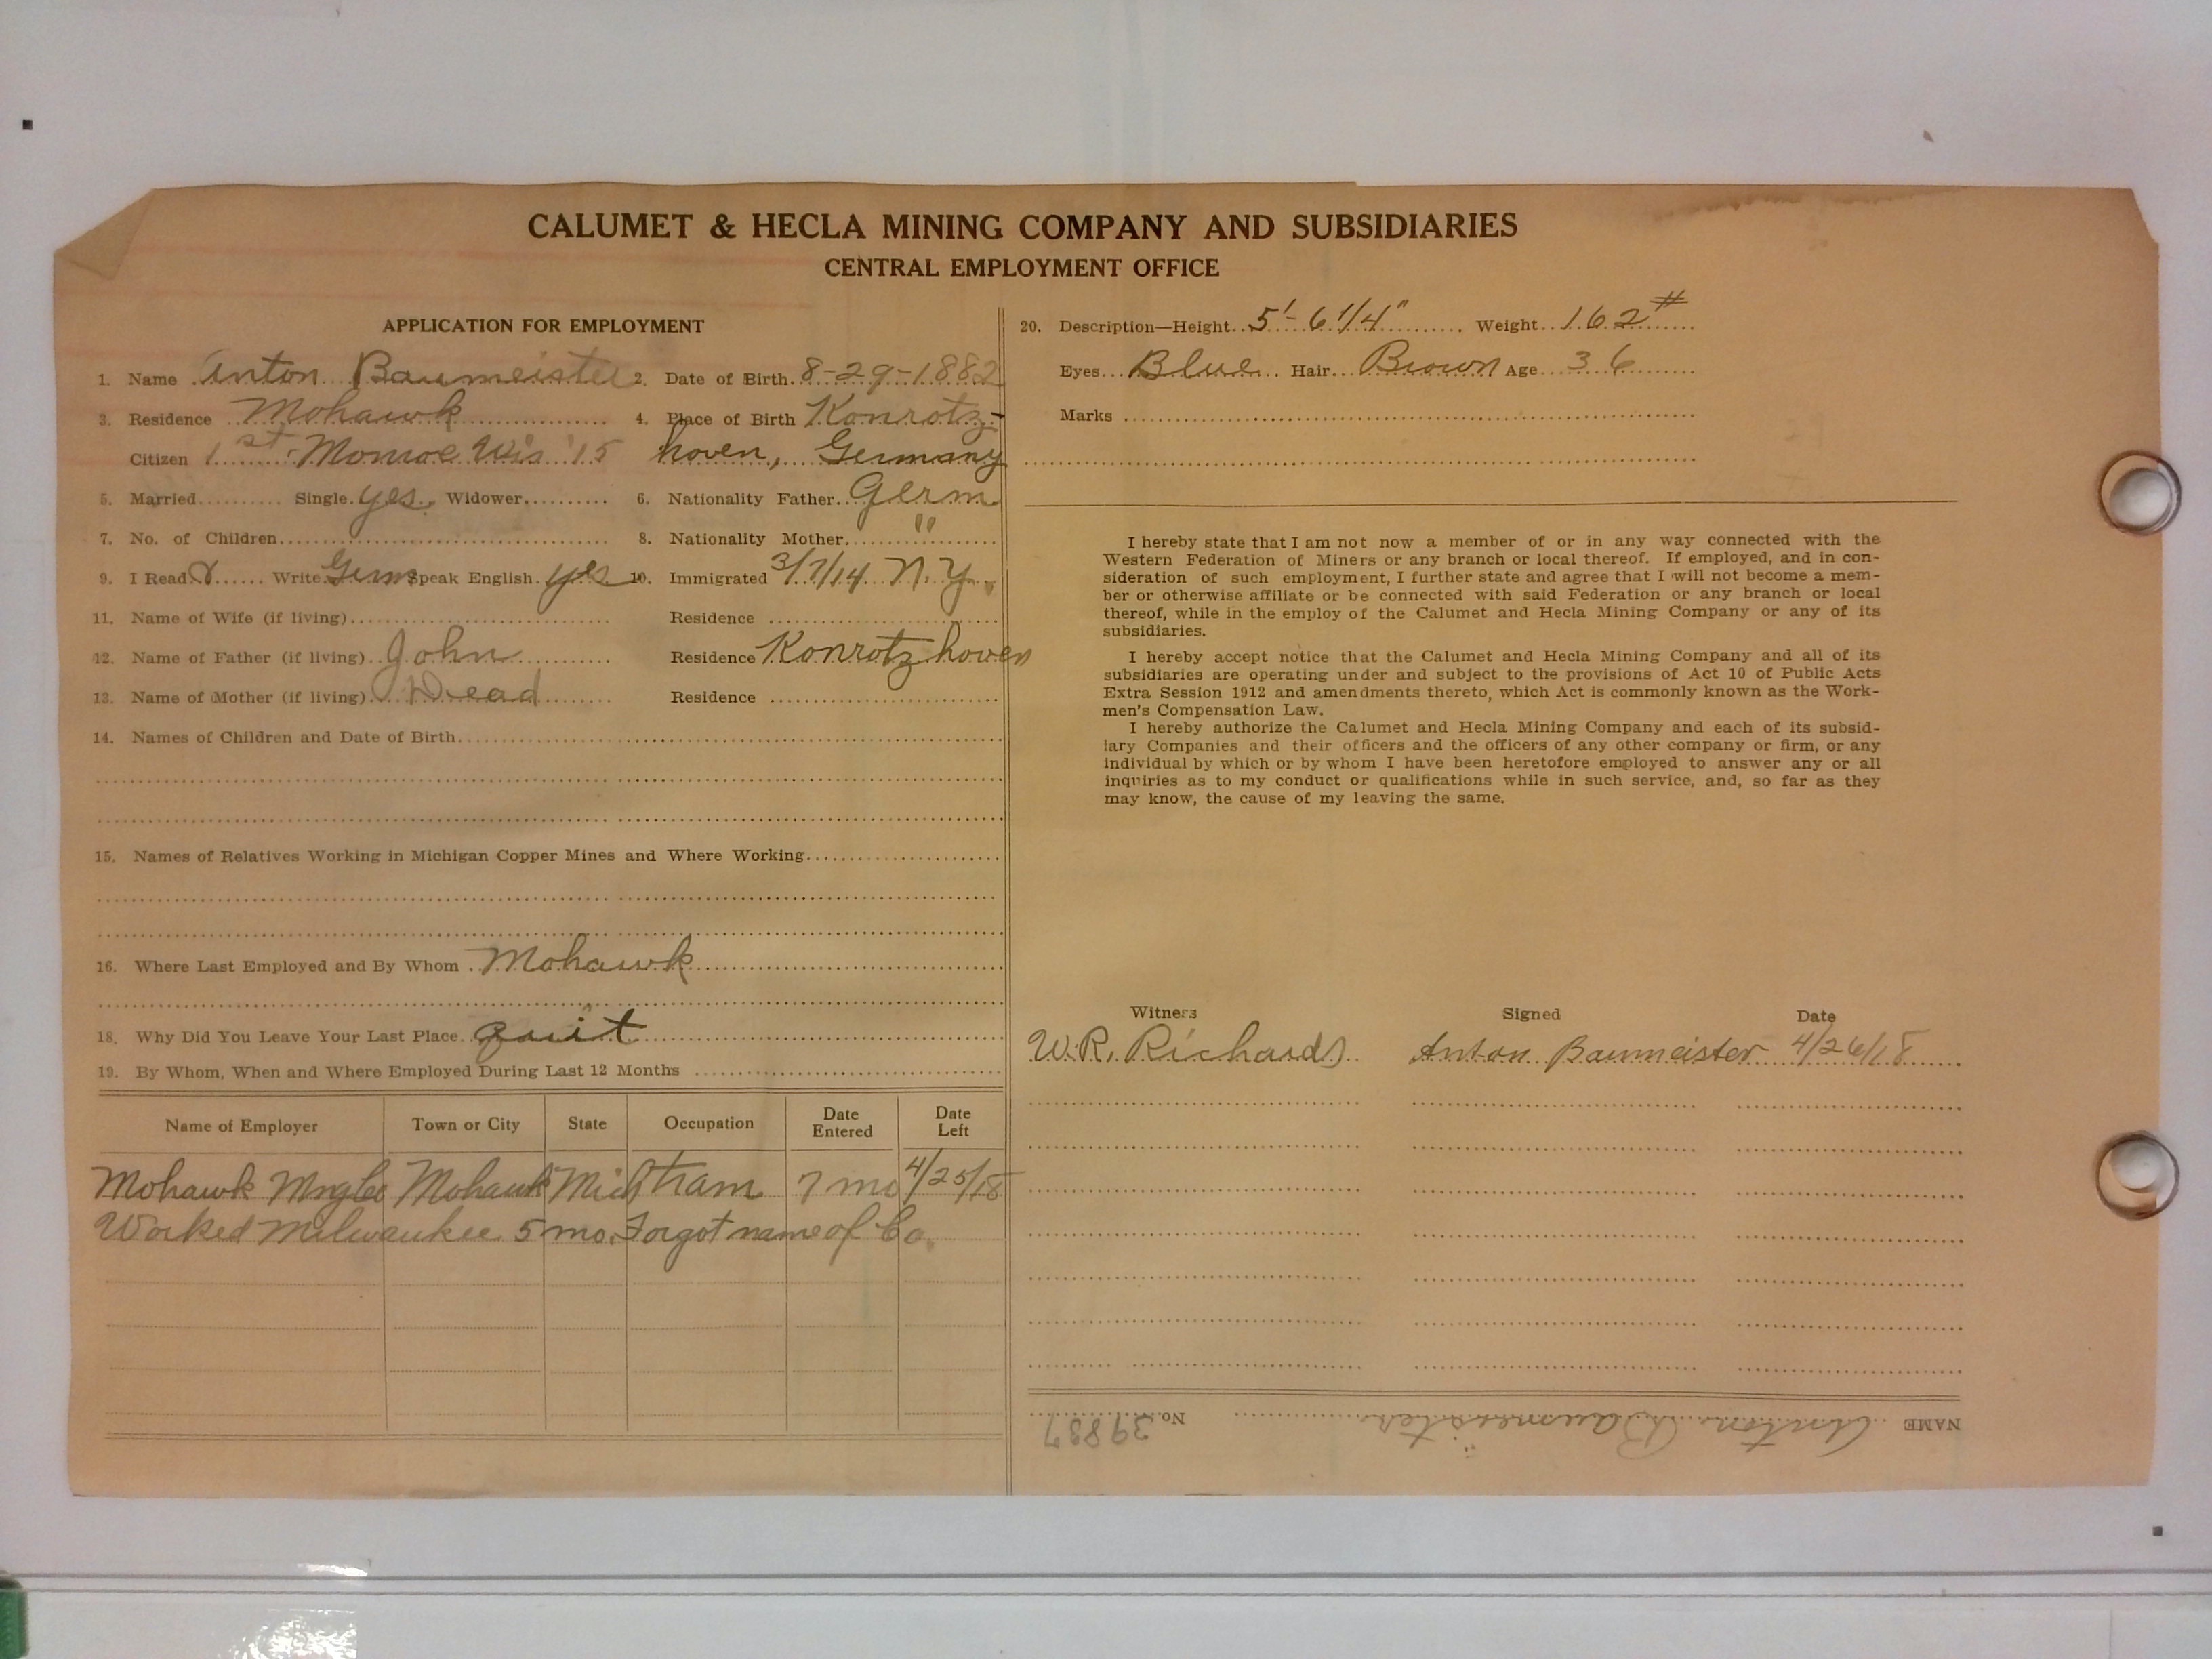 CALUMET & HECLA MINING COMPANY AND SUBSIDIARIES
CENTRAL EMPLOYMENT OFFICE
APPLICATION FOR EMPLOYMENT
1. Name Anton Baumeister 2. Date of Birth 8-29-1882
3. Residence Mohawk 4. Place of Birth Konrotz-
Citizen 1st Monroe Wis '15 hoven, Germany
5. Married Single yes Widower 6. Nationality Father Germ
7. No. of Children 8. Nationality Mother "
9. I Read & Write Germ Speak English yes 10. Immigrated 3/7/14 N.Y.
11. Name of Wife (if living) Residence
12. Name of Father (if living) John Residence Konrotzhoven
13. Name of Mother (if living) Dead Residence
14. Names of Children and Date of Birth
15. Names of Relatives Working in Michigan Copper Mines and Where Working
16. Where Last Employed and By Whom Mohawk
18. Why Did You Leave Your Last Place quit
19. By Whom, When and Where Employed During Last 12 Months
Name of Employer Town or City State Occupation Date Entered Date Left
Mohawk Mng Co Mohawk Mich tram 7 mo 4/25/18
Worked Milwaukee 5 mo. Forgot name of Co.
20. Description—Height 5'-6 1/4" Weight 162#
Eyes Blue Hair Brown Age 36
Marks
I hereby state that I am not now a member of or in any way connected with the
Western Federation of Miners or any branch or local thereof. If employed, and in con-
sideration of such employment, I further state and agree that I will not become a mem-
ber or otherwise affiliate or be connected with said Federation or any branch or local
thereof, while in the employ of the Calumet and Hecla Mining Company or any of its
subsidiaries.
I hereby accept notice that the Calumet and Hecla Mining Company and all of its
subsidiaries are operating under and subject to the provisions of Act 10 of Public Acts
Extra Session 1912 and amendments thereto, which Act is commonly known as the Work-
men's Compensation Law.
I hereby authorize the Calumet and Hecla Mining Company and each of its subsid-
iary Companies and their officers and the officers of any other company or firm, or any
individual by which or by whom I have been heretofore employed to answer any or all
inquiries as to my conduct or qualifications while in such service, and, so far as they
may know, the cause of my leaving the same.
Witness Signed Date
W.R. Richards Anton Baumeister 4/26/18
NAME Anton Baumeister No. 39887